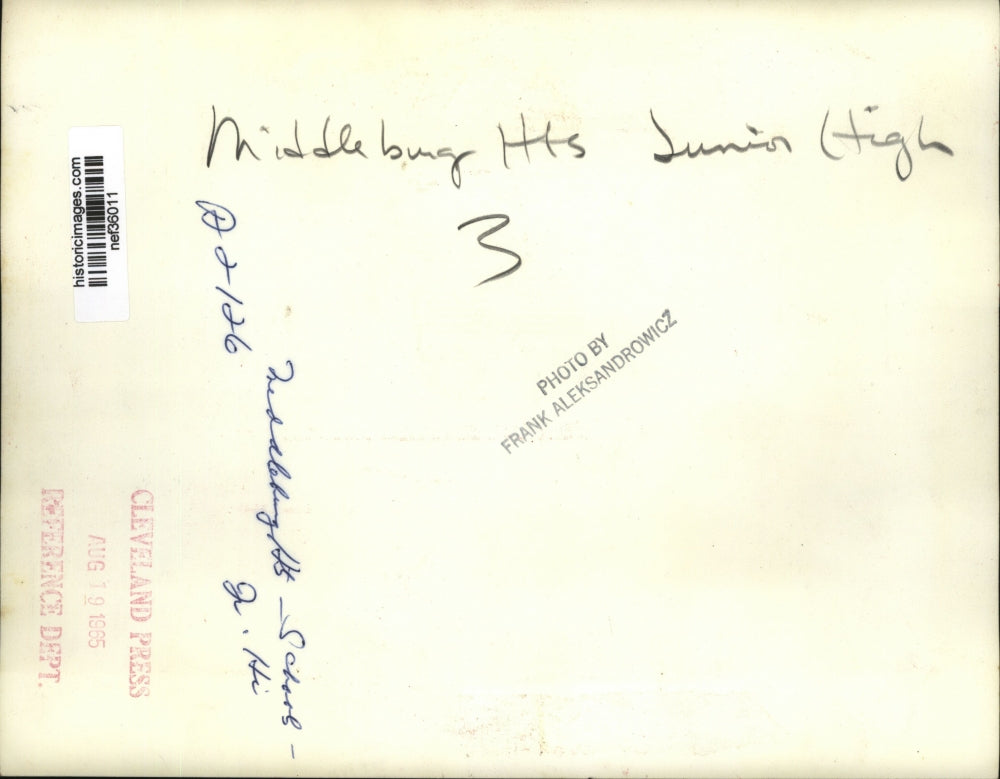 Middleburg Hts Junior High
3
historicimages.com
nef36011
D2126
Middleburg Hts - School -
Jr. Hi
PHOTO BY
FRANK ALEKSANDROWICZ
CLEVELAND PRESS
AUG 19 1965
REFERENCE DEPT.